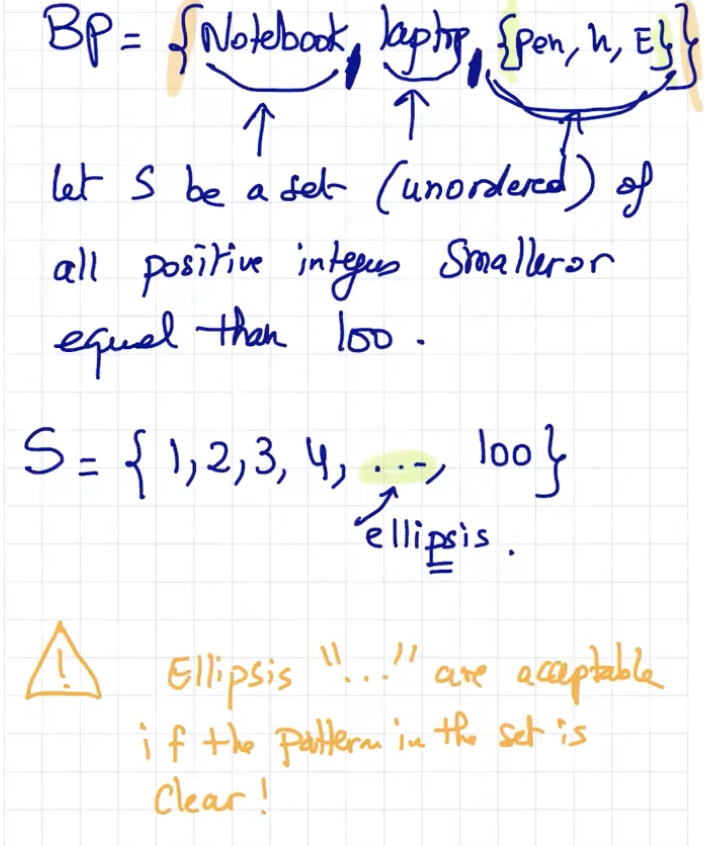 BP = {Notebook, laptop, {pen, h, E}}
let S be a set (unordered) of
all positive integers Smaller or
equal than 100.
S = {1, 2, 3, 4, ..., 100}
ellipsis.
! Ellipsis "..." are acceptable
if the pattern in the set is
Clear!